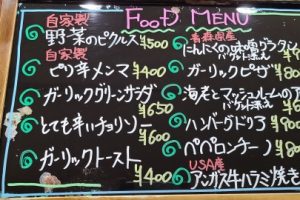 FOOD MENU
自家製
野菜のピクルス ¥500
自家製
ピリ辛メンマ ¥400
ガーリックグリーンサラダ ¥650
とても辛いチョリソー ¥600
ガーリックトースト ¥400
青森県産
にんにくの味噌グラタン
バゲット添え
ガーリックピザ ¥80
海老とマッシュルームのア
バゲット添え
ハンバーグドリア ¥80
ペペロンチーノ ¥80
USA産
アンガス牛ハラミ焼き